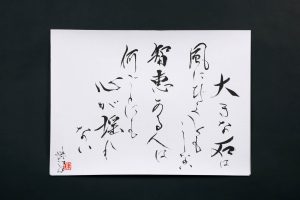 大きな石は
風にびくともしない
智恵ある人は
何ごとにも
心が揺れ
ない